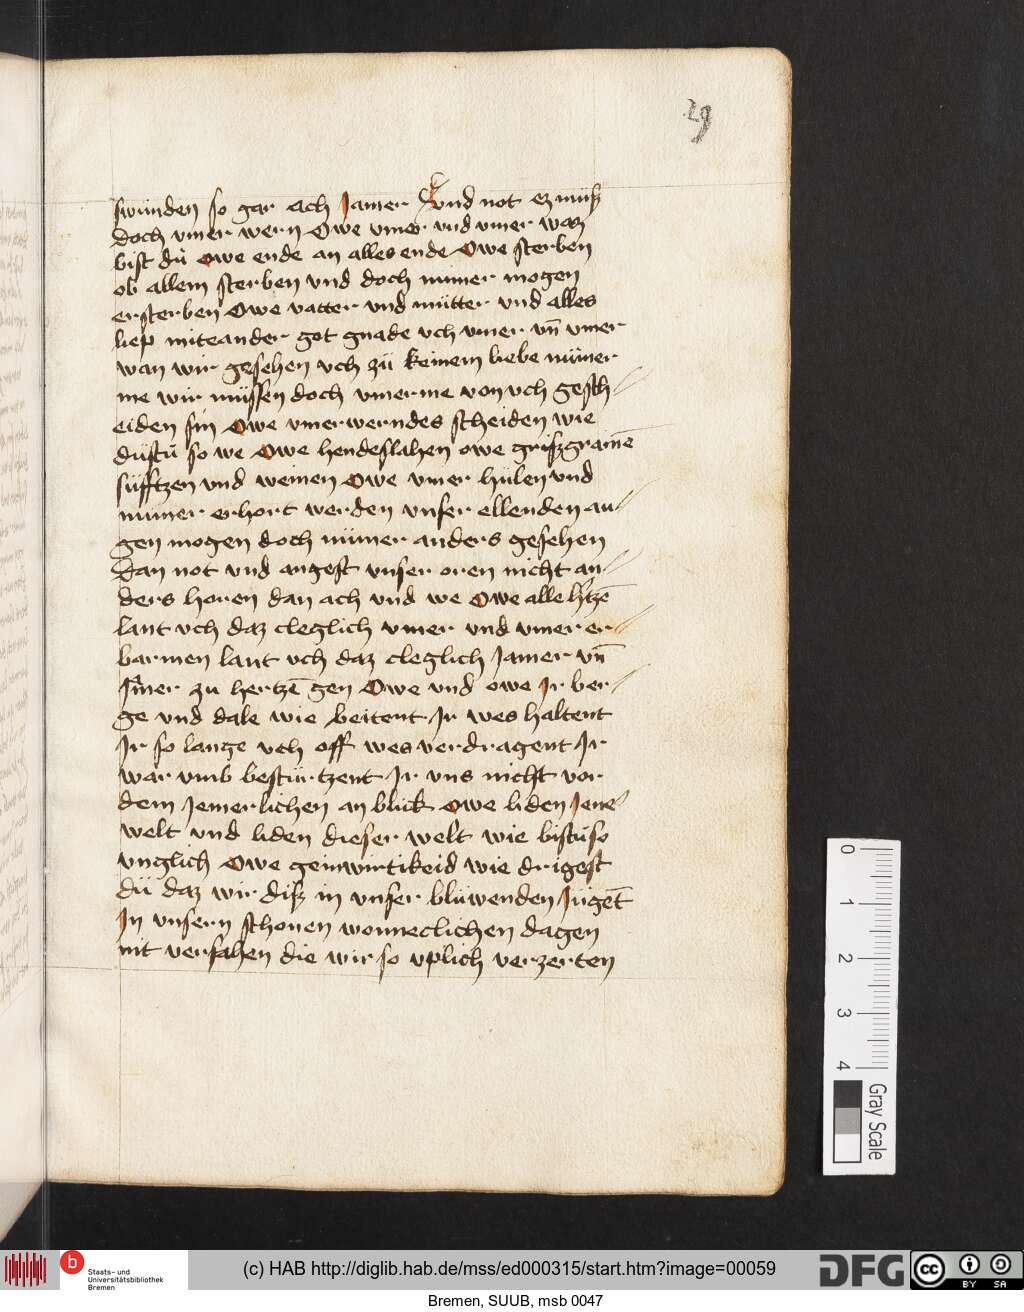 29
swunden so gar ach Jamer vnd not ez muß
doch vmer wern Owe vmer vnd vmer waz
bist dů Owe ende an alles ende Owe sterben
ob allem sterben vnd doch numer mogen
ersterben Owe vatter vnd mütter vnd alles
liep miteander got gnade vch vmer vn̄ vmer
wan wir gesehen vch zü keinem liebe nümer
me wir müssen doch vmerme von vch gesch/
eiden sin Owe vmerwerndes scheiden wie
düstu so we Owe hendeslahen owe grißgramē
süfftzen vnd weinen Owe vmer hülen vnd
numer erhort werden vnser ellenden au/
gen mogen doch nümer anders gesehen
dan not vnd angest vnser oren nicht an/
ders horen dan ach vnd we Owe alle htzē
lant vch daz cleglich vmer vnd vmer er/
barmen lant vch daz cleglich Jamer vn̄
Jmer zu hertzē gen Owe vnd owe Jr ber/
ge vnd dale wie beitent Jr wes haltent
Jr so lange vch off wes verdragent Jr
war vmb besturtzent Jr vns nicht vor
dem Jemerlichen anblick owe liden Jene
welt vnd liden dieser welt wie bistu so
vnglich Owe geinwirtikeid wie drigest
dü daz wir diß in vnser blüwenden Jügēt
In vnsern schonen wonneclichen dagen
nit versahen die wir so vplich verzerten
0
1
2
3
4
Gray Scale
b
Staats- und
Universitätsbibliothek
Bremen
(c) HAB http://diglib.hab.de/mss/ed000315/start.htm?image=00059
DFG
cc
BY SA
Bremen, SUUB, msb 0047